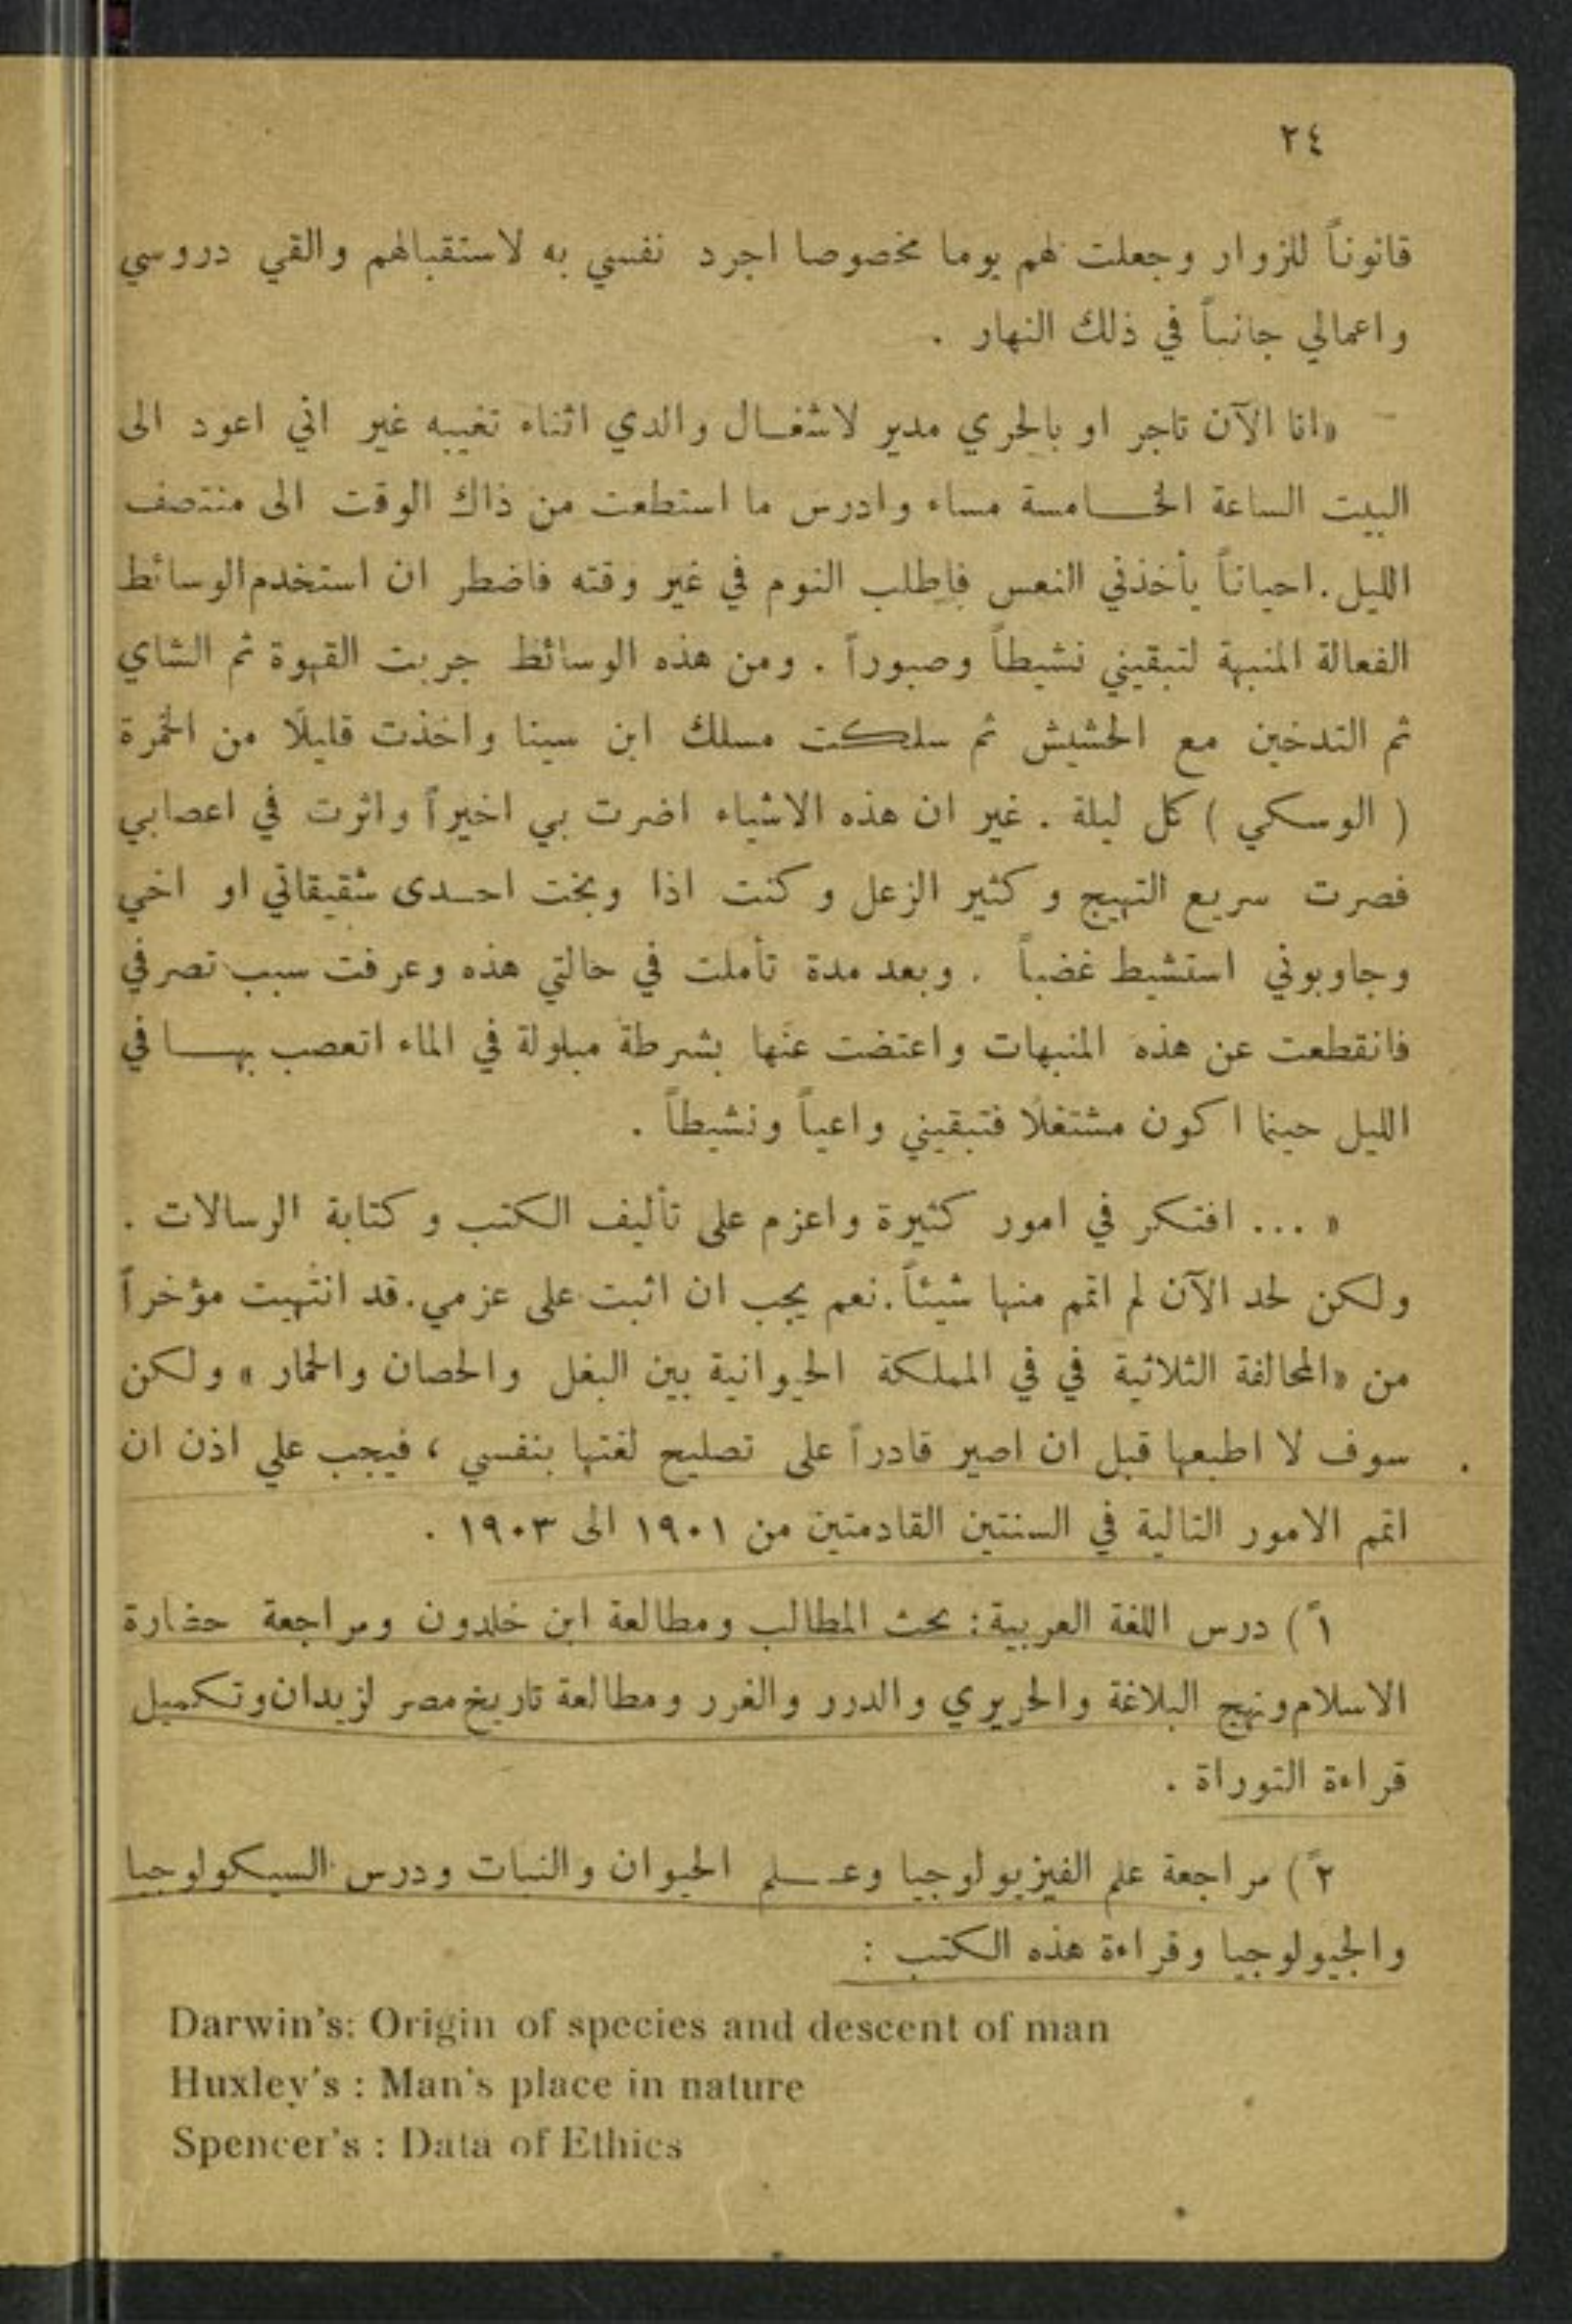 ٢٤
قانوناً للزوار وجعلت لهم يوما مخصوصا اجرد نفسي به لاستقبالهم والقي دروسي
واعمالي جانباً في ذلك النهار .
«انا الآن تاجر او بالحري مدير لاشغال والدي اثناء تغيبه غير اني اعود الى
البيت الساعة الخامسة مساء وادرس ما استطعت من ذاك الوقت الى منتصف
الليل . احياناً يأخذني النعس فاطلب النوم في غير وقته فاضطر ان استخدم الوسائط
الفعالة المنبهة لتبقيني نشيطاً وصبوراً . ومن هذه الوسائط جربت القهوة ثم الشاي
ثم التدخين مع الحشيش ثم سلكت مسلك ابن سينا واخذت قليلًا من الخمرة
( الوسكي ) كل ليلة . غير ان هذه الاشياء اضرت بي اخيراً واثرت في اعصابي
فصرت سريع التهيج وكثير الزعل وكنت اذا وبخت احدى شقيقاتي او اخي
وجاوبوني استشيط غضباً . وبعد مدة تأملت في حالتي هذه وعرفت سبب تصرفي
فانقطعت عن هذه المنبهات واعتضت عنها بشرطة مبلولة في الماء اتعصب بها في
الليل حينما اكون مشتغلًا فتبقيني واعياً ونشيطاً .
« ... افتكر في امور كثيرة واعزم على تأليف الكتب وكتابة الرسالات .
ولكن لحد الآن لم اتمم منها شيئاً . نعم يجب ان اثبت على عزمي . قد انتهيت مؤخراً
من «المحالفة الثلاثية في في المملكة الحيوانية بين البغل والحصان والحمار » ولكن
سوف لا اطبعها قبل ان اصير قادراً على تصليح لغتها بنفسي ، فيجب علي اذن ان
اتمم الامور التالية في السنتين القادمتين من ١٩٠١ الى ١٩٠٣ .
١ً ) درس اللغة العربية : بحث المطالب ومطالعة ابن خلدون ومراجعة حضارة
الاسلام ونهج البلاغة والحريري والدرر والغرر ومطالعة تاريخ مصر لزيدان وتكميل
قراءة التوراة .
٢ً ) مراجعة علم الفيزيولوجيا وعلم الحيوان والنبات ودرس السيكولوجيا
والجيولوجيا وقراءة هذه الكتب :
Darwin's: Origin of species and descent of man
Huxley's : Man's place in nature
Spencer's : Data of Ethics